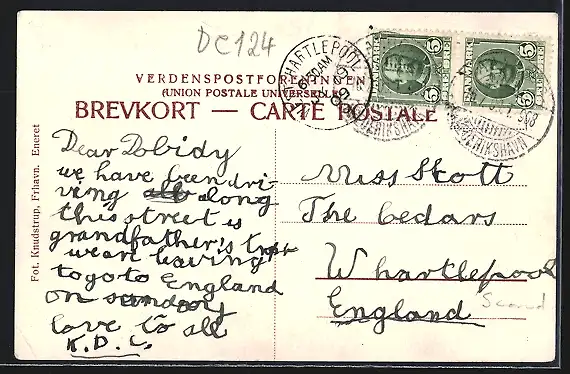 DC 124
VERDENSPOSTFORENINGEN
(UNION POSTALE UNIVERSELLE)
BREVKORT — CARTE POSTALE
Fot. Knudstrup, Frhavn. Eneret
HARTLEPOOL
DANMARK
5
5
5
5
FREDERIKSHAVN
Dear Dobidy
we have been dri
ving along
this street is
grandfather's
we are leaving
to go to England
on sunday
love to all
K.D.C.
Miss Scott
The cedars
W hartlepool
England